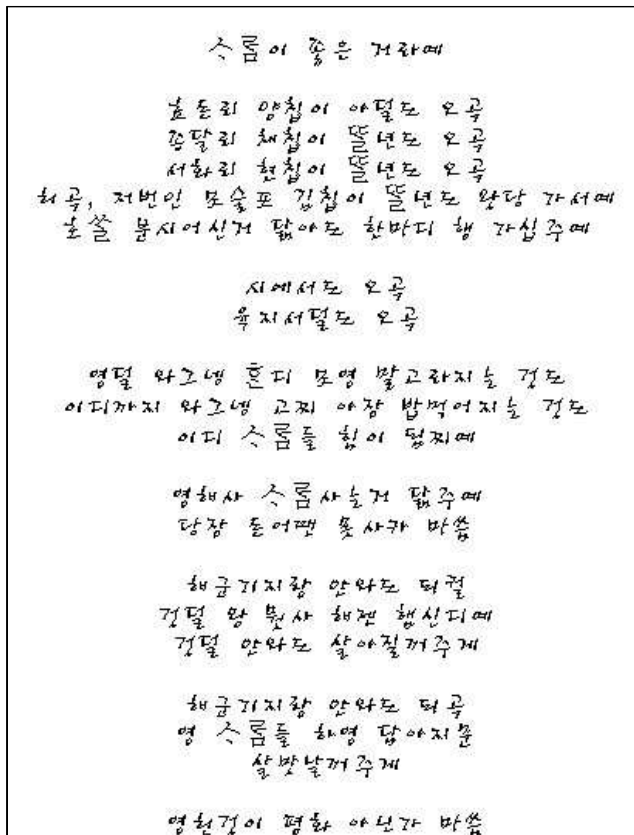 ᄉᆞ름이 좋은 거라예
효돈리 양칩이 아덜도 오곡
종달리 채칩이 ᄄᆞᆯ년도 오곡
서화리 현칩이 ᄄᆞᆯ년도 오곡
허곡, 저번인 모슬포 김칩이 ᄄᆞᆯ년도 왓당 가서예
호쏠 분시어신거 닮아도 한마디 행 가십주예
시에서도 오곡
육지서덜도 오곡
영덜 와그넹 흔디 모영 말고라지는 것도
이디까지 와그넹 고찌 아장 밥먹어지는 것도
이디 ᄉᆞ름들 힘이 됩찌예
영해사 ᄉᆞ름사는거 닮주예
당장 돈어땐 못사카 마씀
해군기지랑 안와도 되컬
것덜 왕 뭣사 해젠 햄신디예
것덜 안와도 살아질꺼주게
해군기지랑 안와도 되곡
영 ᄉᆞ름들 하영 답아지문
살맛날꺼주게
영헌것이 평화 아닌가 마씀